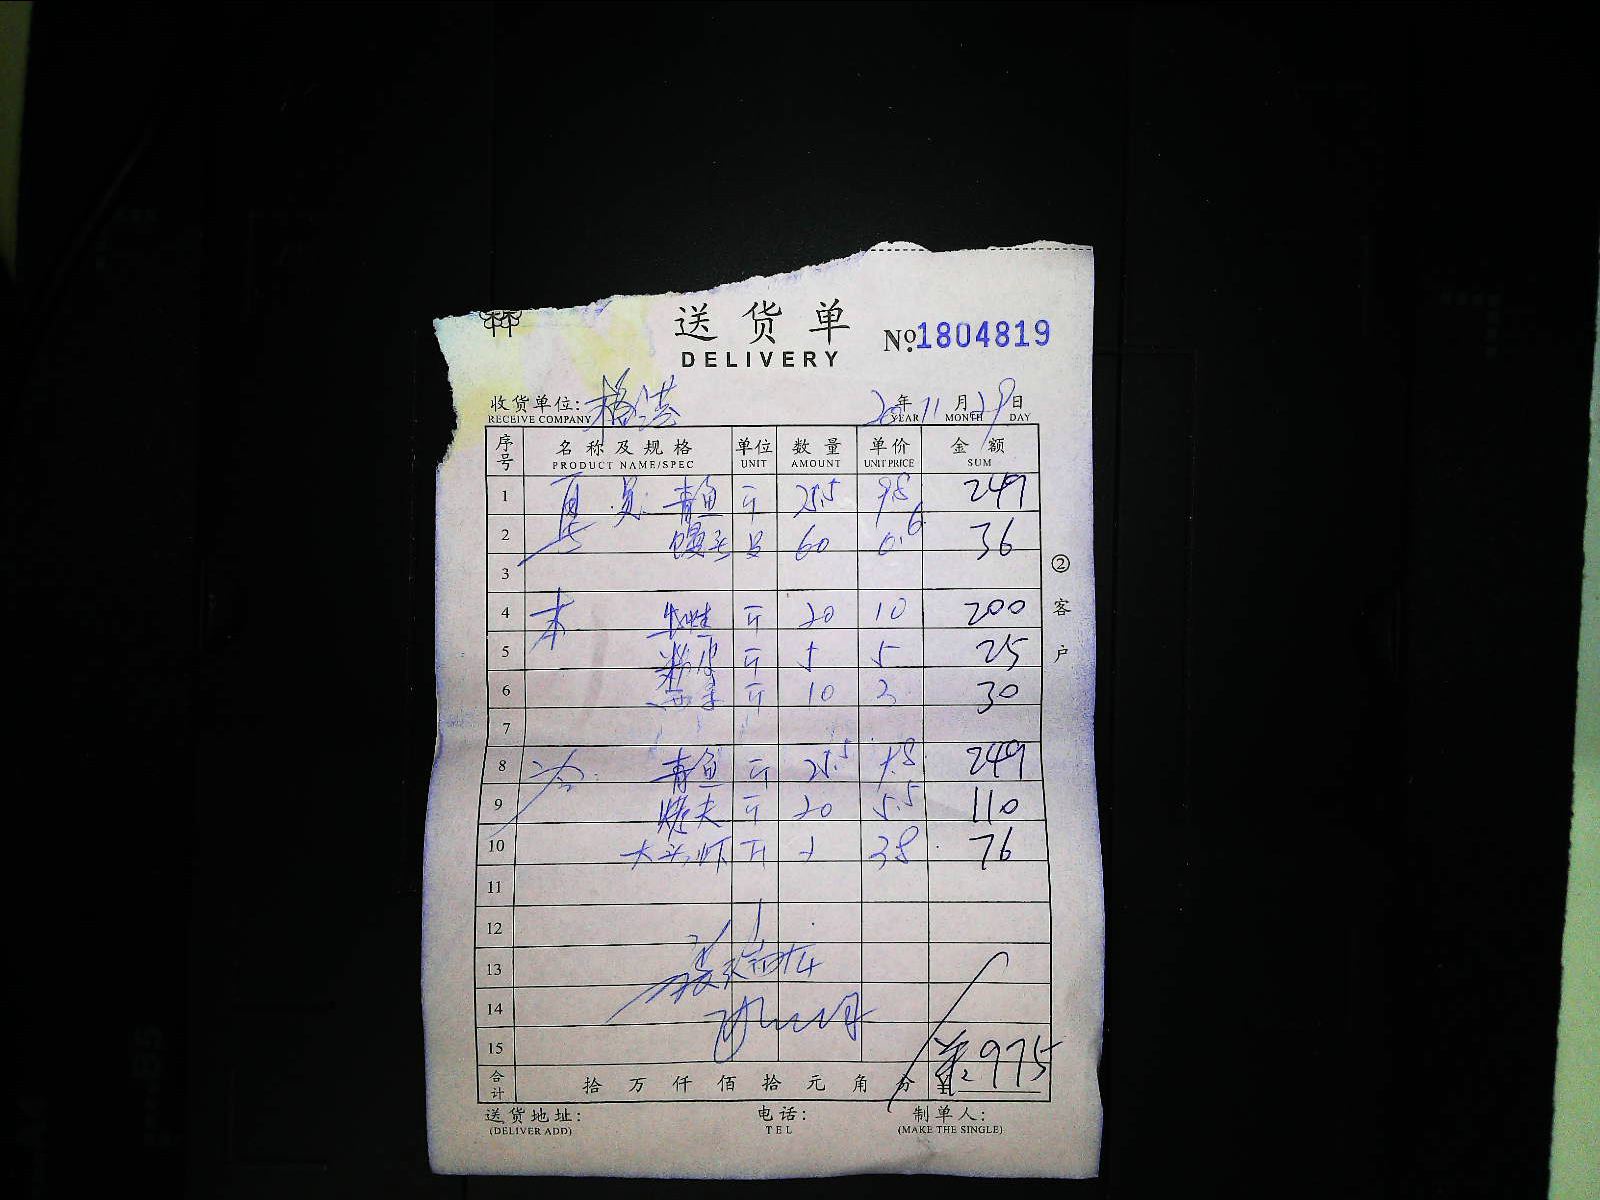 送货单
DELIVERY
№1804819
收货单位:
RECEIVE COMPANY
20年11月29日
YEAR MONTH DAY
序号 名称及规格 单位 数量 单价 金额
PRODUCT NAME/SPEC UNIT AMOUNT UNIT PRICE SUM
1 青鱼 斤 25.5 9.8 249
2 馒头 60 0.6 36
3
4 本 斤 20 10 200
5 粉皮 斤 5 5 25
6 西芹 斤 10 3 30
7
8 冷 青鱼 斤 25.5 9.8 249
9 烤夫 斤 20 5.5 110
10 大头虾 斤 2 38 76
11
12
13
14
15
975
合计 拾 万 仟 佰 拾 元 角 分
② 客户
送货地址: 电话: 制单人:
(DELIVER ADD) TEL (MAKE THE SINGLE)